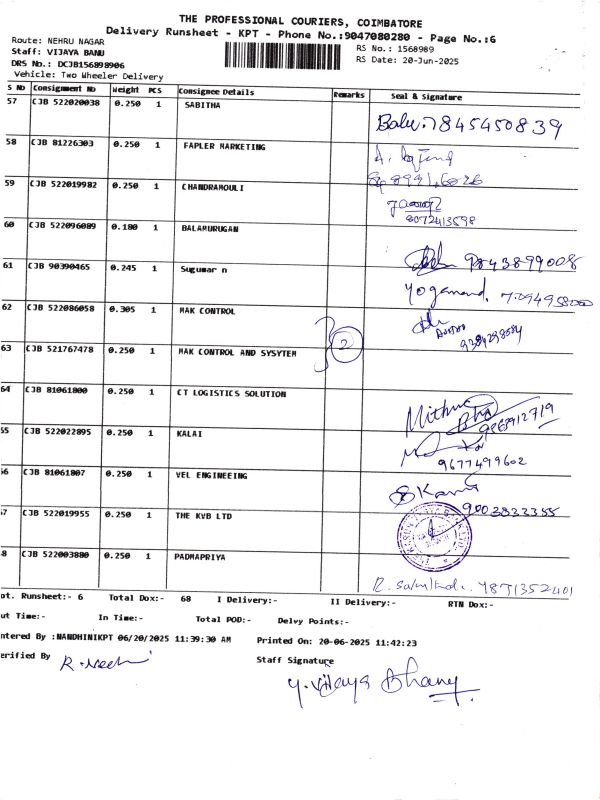 THE PROFESSIONAL COURIERS, COIMBATORE
Delivery Runsheet - KPT - Phone No.:9047080280 - Page No.:6
Route: NEHRU NAGAR
RS No.: 1568989
Staff: VIJAYA BANU
RS Date: 20-Jun-2025
DRS No.: DCJB156898906
Vehicle: Two Wheeler Delivery
S No Consignment No Weight PCS Consignee Details Remarks Seal & Signature
57 CJB 522020038 0.250 1 SABITHA
Balu. 7845450839
58 CJB 81226303 0.250 1 FAPLER MARKETING
59 CJB 522019982 0.250 1 CHANDRAMOULI
8072413598
60 CJB 522096089 0.180 1 BALAMURUGAN
9843899008
61 CJB 90390465 0.245 1 Sugumar n
Yoganand.
62 CJB 522086058 0.305 1 MAK CONTROL
2
63 CJB 521767478 0.250 1 MAK CONTROL AND SYSYTEM
64 CJB 81061800 0.250 1 CT LOGISTICS SOLUTION
Mithu
55 CJB 522022895 0.250 1 KALAI
9677499602
56 CJB 81061807 0.250 1 VEL ENGINEEING
9003833355
57 CJB 522019955 0.250 1 THE KVB LTD
8 CJB 522003880 0.250 1 PADMAPRIYA
ot. Runsheet:- 6 Total Dox:- 68 I Delivery:- II Delivery:- RTN Dox:-
ut Time:- In Time:- Total POD:- Delvy Points:-
ntered By :NANDHINIKPT 06/20/2025 11:39:30 AM Printed On: 20-06-2025 11:42:23
erified By
Staff Signature
Y. Vijaya Bhany